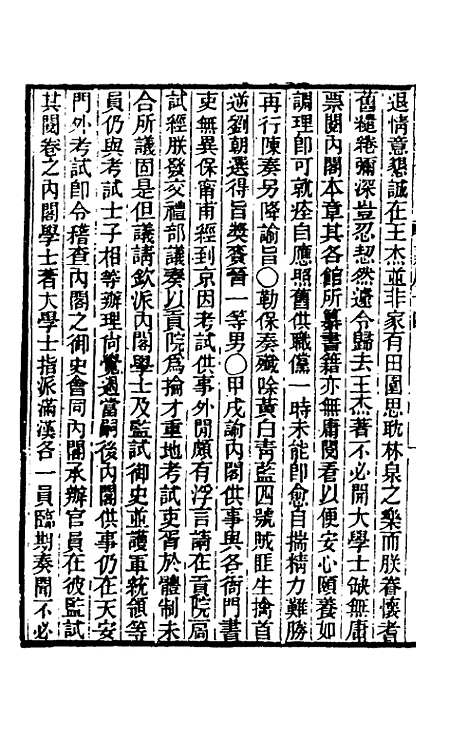 退情意懇誠在王杰並非家有田園思耽林泉之樂而朕眷懷耆
舊繾綣彌深豈忍恝然遽令歸去王杰著不必開大學士缺無庸
票閱內閣本章其各館所纂書籍亦無庸閱看以便安心頤養如
調理卽可就痊自應照舊供職儻一時未能卽愈自揣精力難勝
再行陳奏另降諭旨○勒保奏殲除黃白靑藍四號賊匪生擒首
逆劉朝選得旨獎賚晉一等男○甲戌諭內閣供事與各衙門書
吏無異保甯甫經到京因考試供事外閒頗有浮言請在貢院扃
試經朕發交禮部議奏以貢院爲掄才重地考試吏胥於體制未
合所議固是但議請欽派內閣學士及監試御史並護軍統領等
員仍與考試士子相等辦理尙覺過當嗣後內閣供事仍在天安
門外考試卽令稽查內閣之御史會同內閣承辦官員在彼監試
其閱卷之內閣學士著大學士指派滿漢各一員臨期奏聞不必